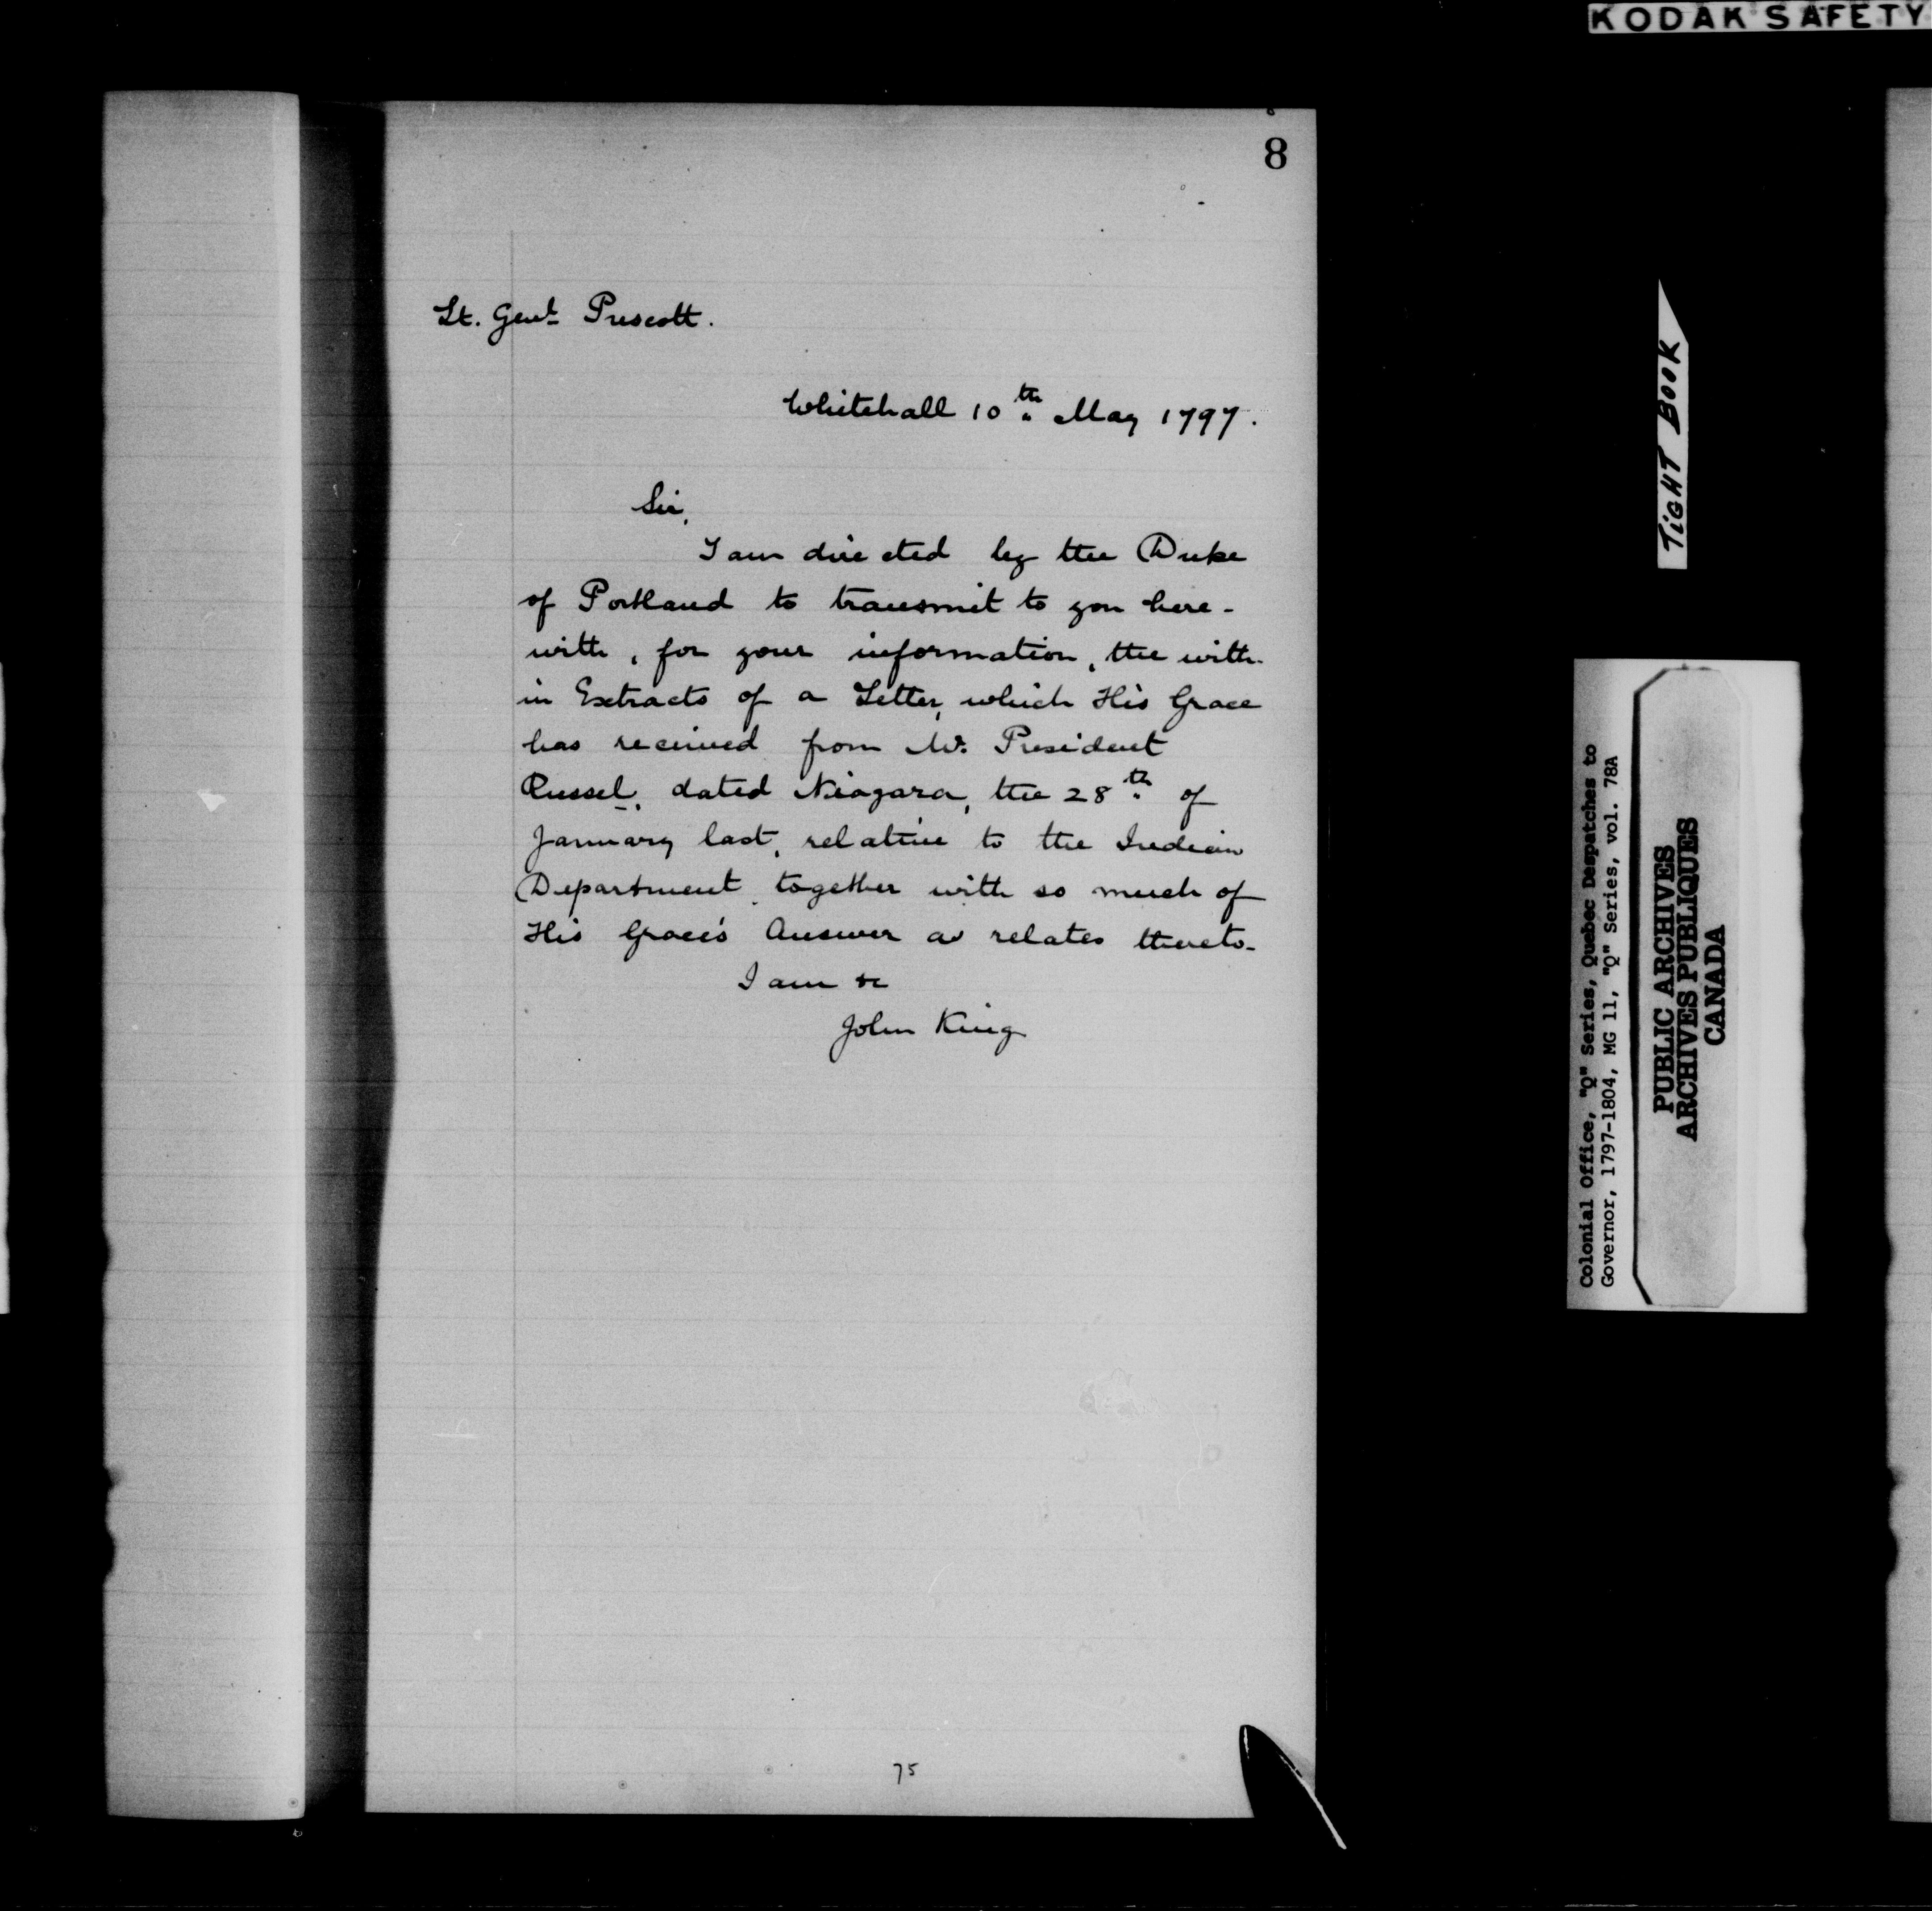 KODAK SAFETY
8
Lt. Genl. Prescott.
Whitehall 10th May 1797.
Sir,
I am directed by the Duke
of Portland to transmit to you here-
with, for your information, the with-
in Extracts of a Letter, which His Grace
has received from Mr. President
Russel, dated Niagara, the 28th of
January last, relative to the Indian
Department, together with so much of
His Grace's Answer as relates thereto.
I am &c
John King
75
TIGHT BOOK
Colonial Office, "Q" Series, Quebec Despatches to
Governor, 1797-1804, MG 11, "Q" Series, vol. 78A
PUBLIC ARCHIVES
ARCHIVES PUBLIQUES
CANADA